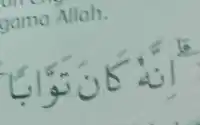 gama Allah.
إِنَّهُ كَانَ تَوَّابًا